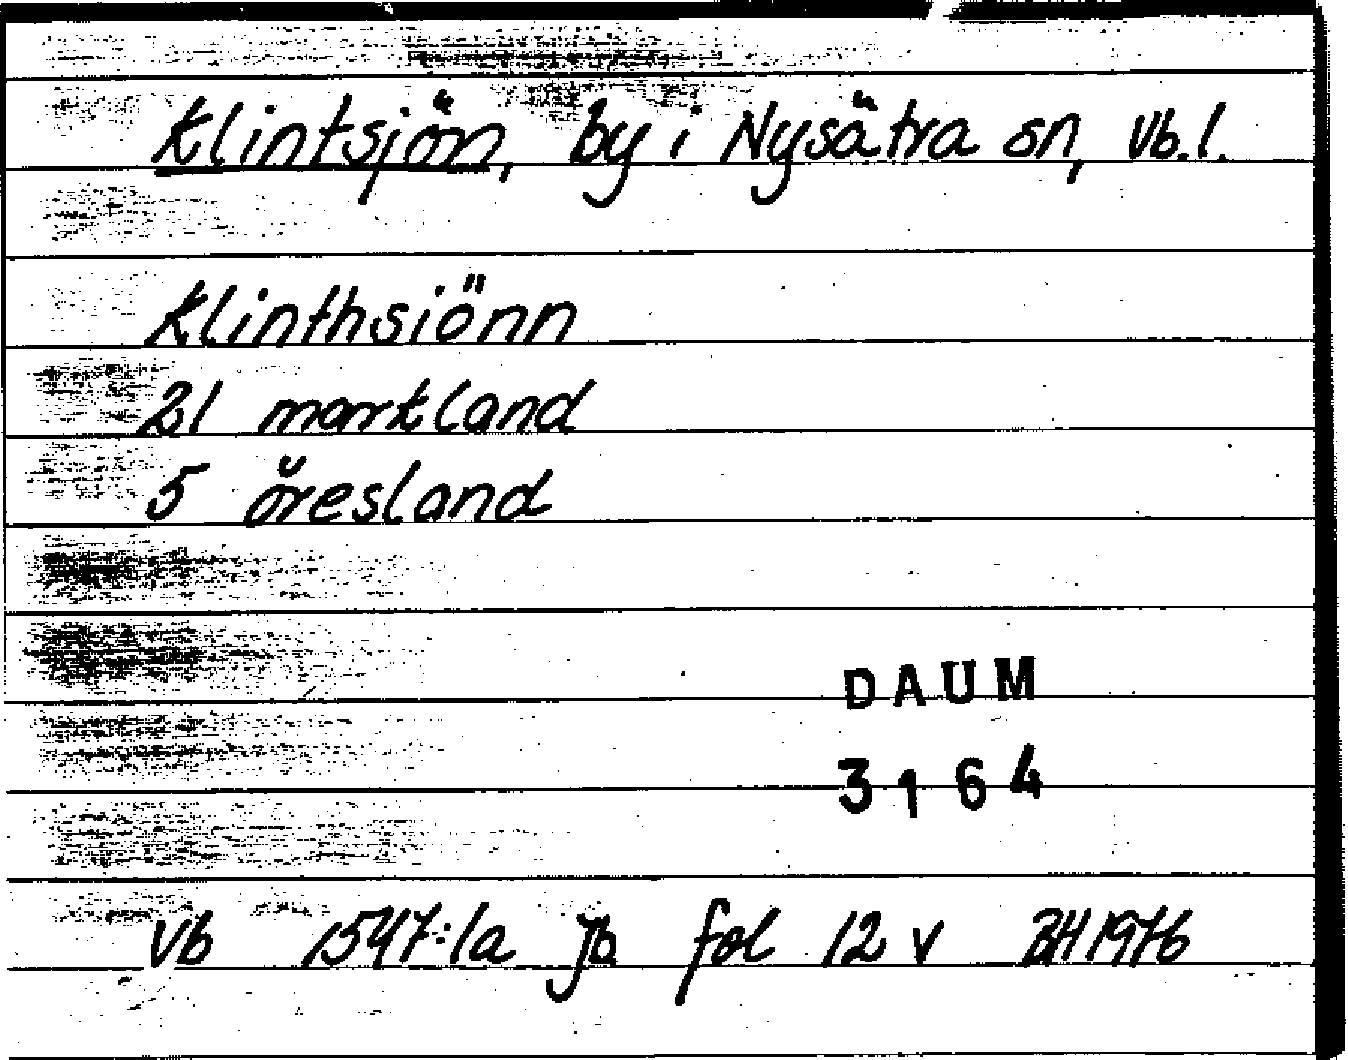 Klintsjön, by i Nysätra sn, Vb.l.
Klinthsiönn
21 markland
5 öresland
DAUM
3164
Vb 1547:1a Jb fol 12 v BH 1976